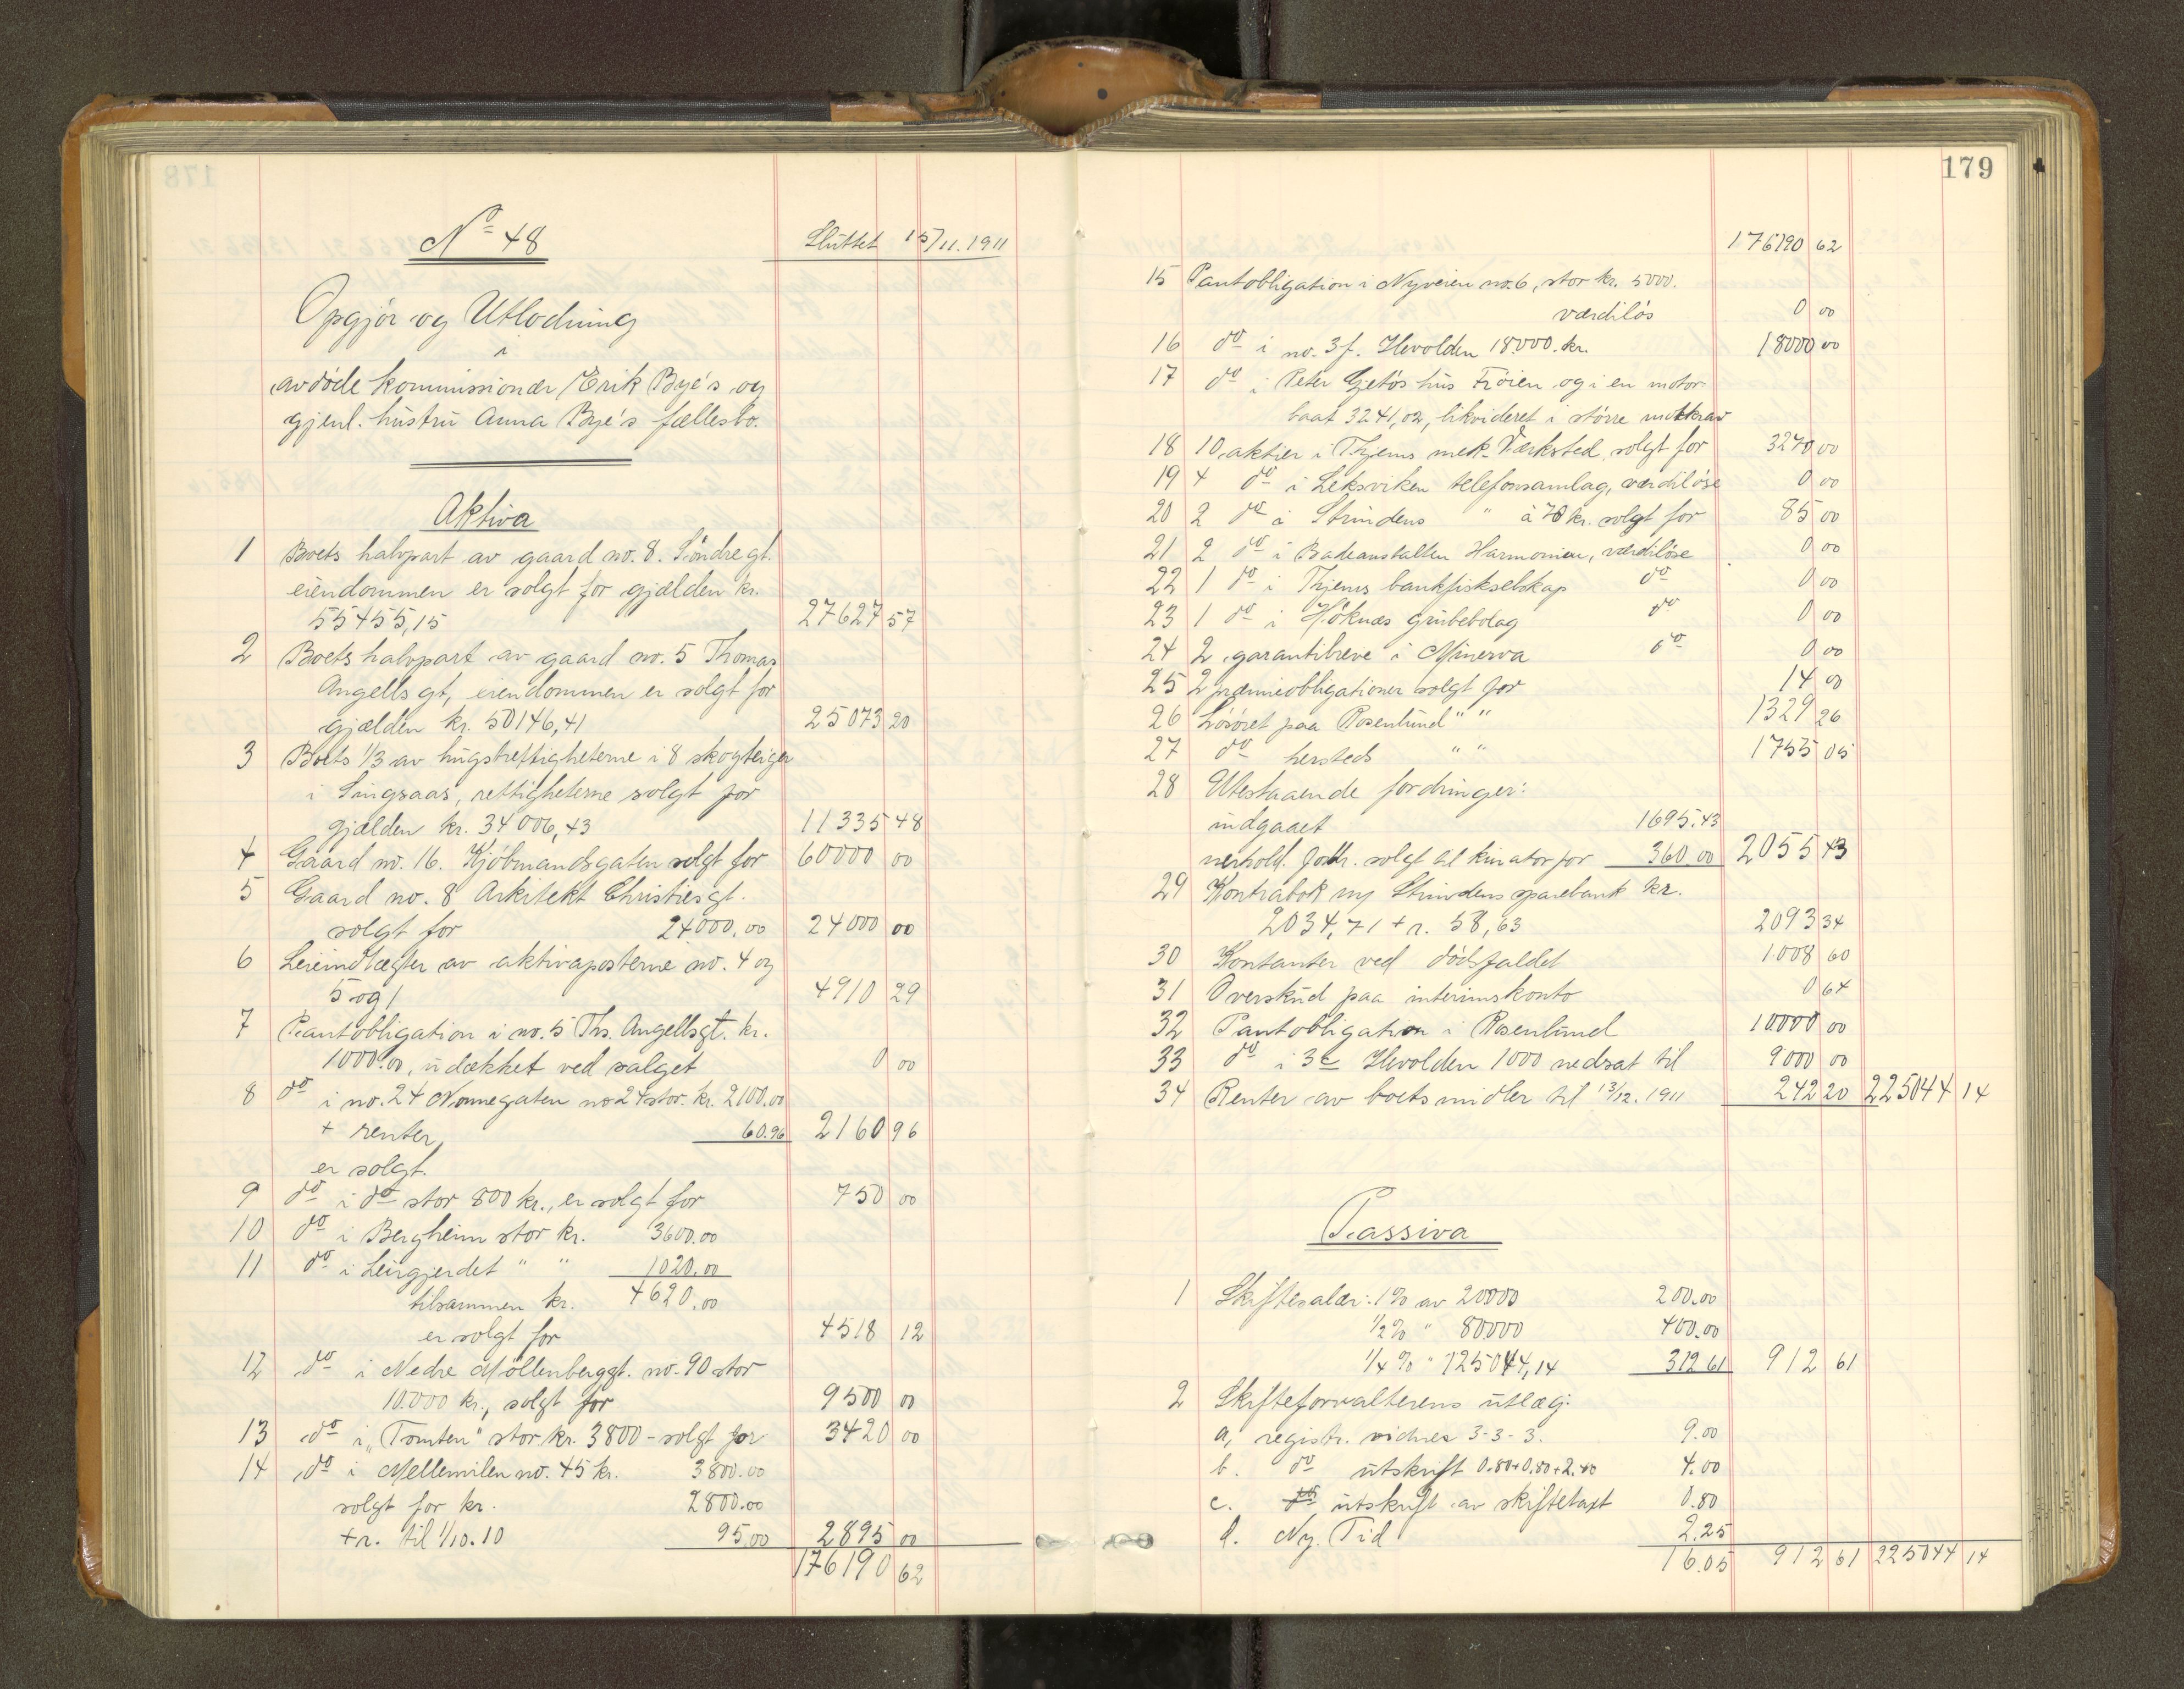 178
No 48
Sluttet 15/11.1911
Opgjör og Utlodning
i
avdöde kommissionær Erik Bye's og
gjenl. hustru Anna Bye's fællesbo.
Aktiva
1 Boets halvpart av gaard no. 8. Söndregt.
eiendommen er solgt for gjælden kr.
55455,15 27627 57
2 Boets halvpart av gaard no. 5 Thomas
Angells gt, eiendommen er solgt for
gjælden kr. 50146,41 25073 20
3 Boets 1/3 av hugstrettigheterne i 8 skogteiger
i Singsaas, rettigheterne solgt for
gjælden kr. 34006,43 11335 48
4 Gaard no. 16. Kjöbmandsgaten solgt for 60000 00
5 Gaard no. 8 Arkitekt Christiesgt.
solgt for 24000.00 24000 00
6 Leieindtægter av aktivaposterne no. 4 og
5 og 1 4910 29
7 Pantobligation i no. 5 Ths. Angellsgt. kr.
1000.00, udækket ved salget 0 00
8 do i no. 24 Nonnegaten no 24 stor. kr. 2100.00
+ renter 60.96 2160 96
er solgt.
9 do i do stor 800 kr., er solgt for 750 00
10 do i Bergheim stor kr. 3600.00
11 do i Leirgjerdet " " 1020.00
tilsammen kr. 4620.00
er solgt for 4518 12
12 do i Nedre Möllenberggt. no. 90 stor
10.000 kr., solgt for 9500 00
13 do i "Tomten" stor kr. 3800 - solgt for 3420 00
14 do i Mellemilen no. 45 kr. 3800.00
solgt for kr. 2800.00
+ r. til 1/10.10 95.00 2895 00
176190 62
179
176190 62
15 Pantobligation i Nyveien no. 6, stor kr. 5000.
værdilös 0 00
16 do i no. 3 f. Ilevolden 18000. kr. 18000 00
17 do i Peter Gjetös hus Fröien og i en motor-
baat 3241,02, likvideret i större motkrav
18 10 aktier i Thjems mek. Værksted solgt for 3270 00
19 4 do i Leksviken telefonsamlag, værdilöse 0 00
20 2 do i Strindens " à 70 kr. solgt for 85 00
21 2 do i Badeanstalten Harmonien, værdilöse 0 00
22 1 do i Thjems bankfiskselskap do 0 00
23 1 do i Höknæs grubebolag do 0 00
24 2 garantibreve i Minerva do 0 00
25 2 præmieobligationer solgt for 14 00
26 Lösöret paa Rosenlund " " 1329 26
27 do hersteds " " 1755 05
28 Utestaaende fordringer:
indgaaet 1695.43
solgt til kurator for 360.00 2055 43
29 Kontrabok Strindens sparebank kr.
2034,71 + r. 58,63 2093 34
30 Kontanter ved dödsfaldet 1008 60
31 Overskud paa interimskonto 0 64
32 Pantobligation i Rosenlund 10000 00
33 do i 3c Ilevolden 1000 nedsat til 9000 00
34 Renter av boets midler til 13/12.1911 242 20 225044 14
Passiva
1 Skiftesalær: 1% av 20000 200.00
1/2% " 80000 400.00
1/4% " 125044,14 312 61 912 61
2 Skifteforvalterens utlæg:
a, registr. vidner 3-3-3. 9.00
b. do utskrift 0.80+0.80+2.40 4.00
c. do utskrift av skiftetaxt 0.80
d. Ny Tid 2.25
16.05 912 61 225044 14